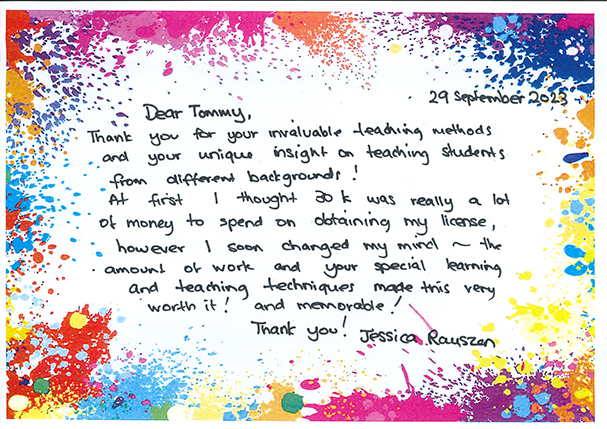 29 September 2023
Dear Tommy,
Thank you for your invaluable teaching methods
and your unique insight on teaching students
from different backgrounds!
At first I thought 30k was really a lot
of money to spend on obtaining my license,
however I soon changed my mind ~ the
amount of work and your special learning
and teaching techniques made this very
worth it! and memorable!
Thank you! Jessica Rauszen